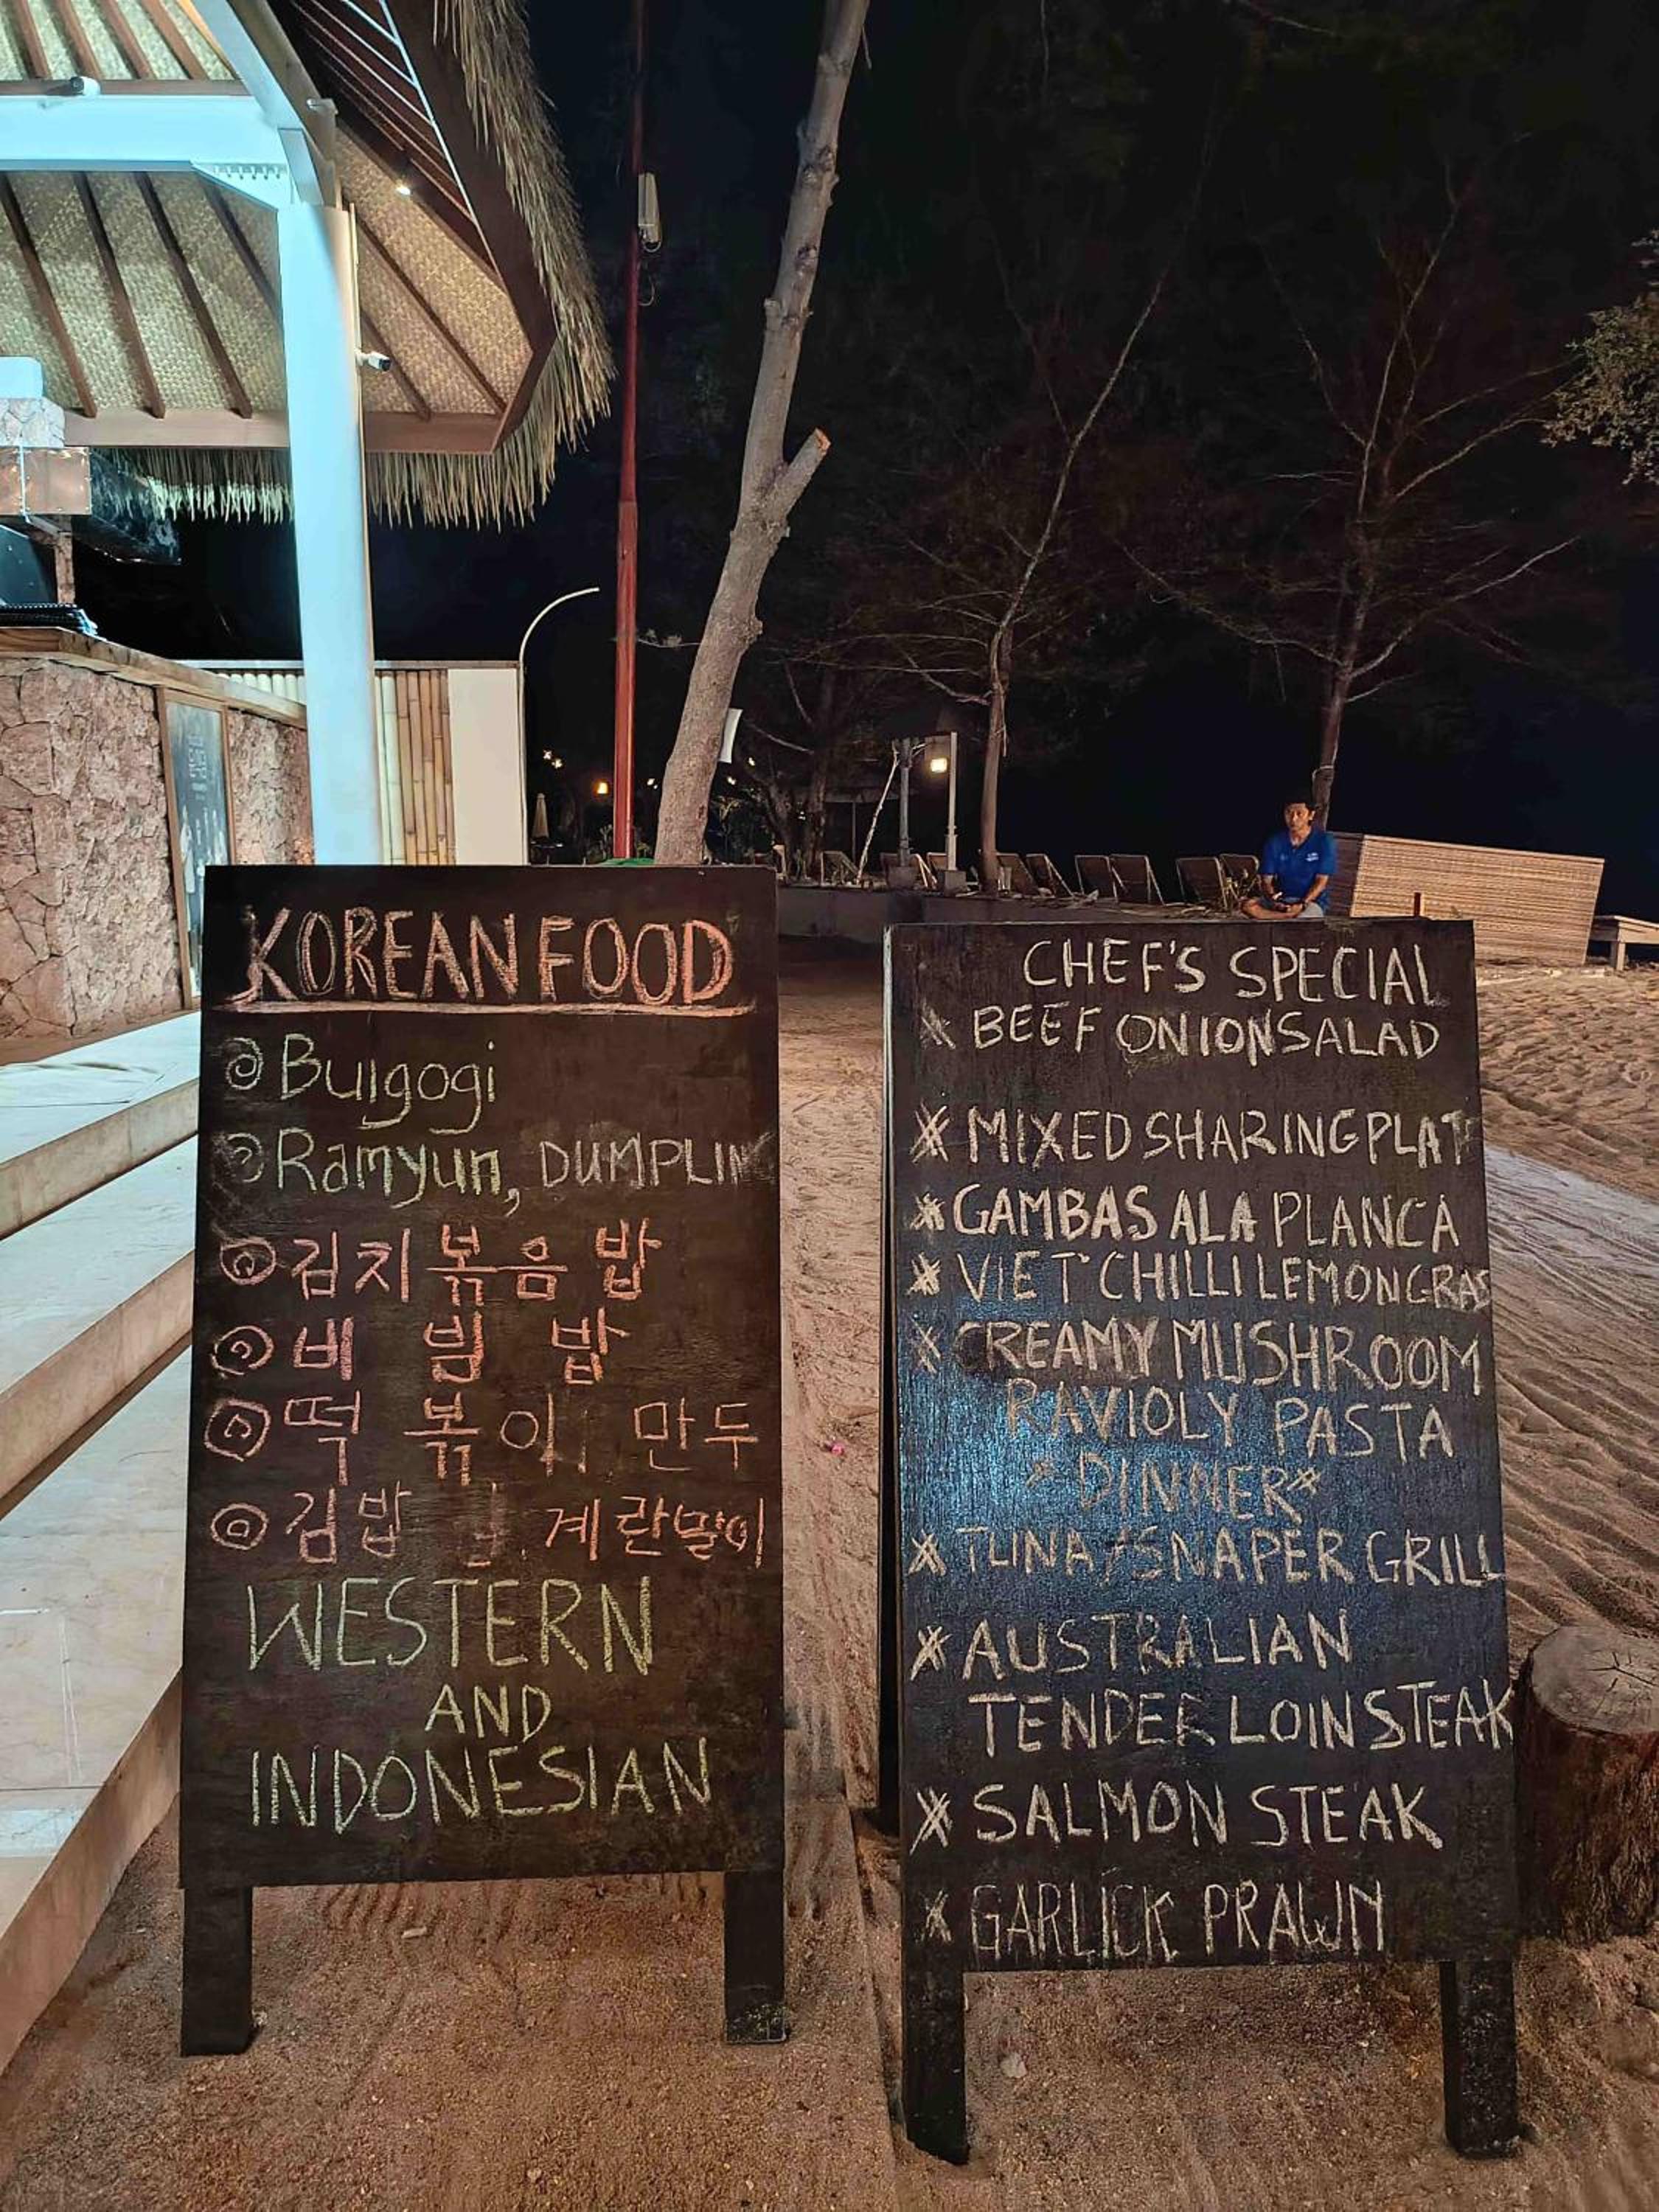 KOREAN FOOD
Bulgogi
Ramyun, DUMPLING
김치볶음밥
비빔밥
떡볶이 만두
김밥 계란말이
WESTERN
AND
INDONESIAN
CHEF'S SPECIAL
BEEF ONION SALAD
MIXED SHARING PLAT
GAMBAS ALA PLANCA
VIET CHILLI LEMONGRAS
CREAMY MUSHROOM
RAVIOLY PASTA
DINNER
TUNA/SNAPER GRILL
AUSTRALIAN
TENDER LOIN STEAK
SALMON STEAK
GARLICK PRAWN